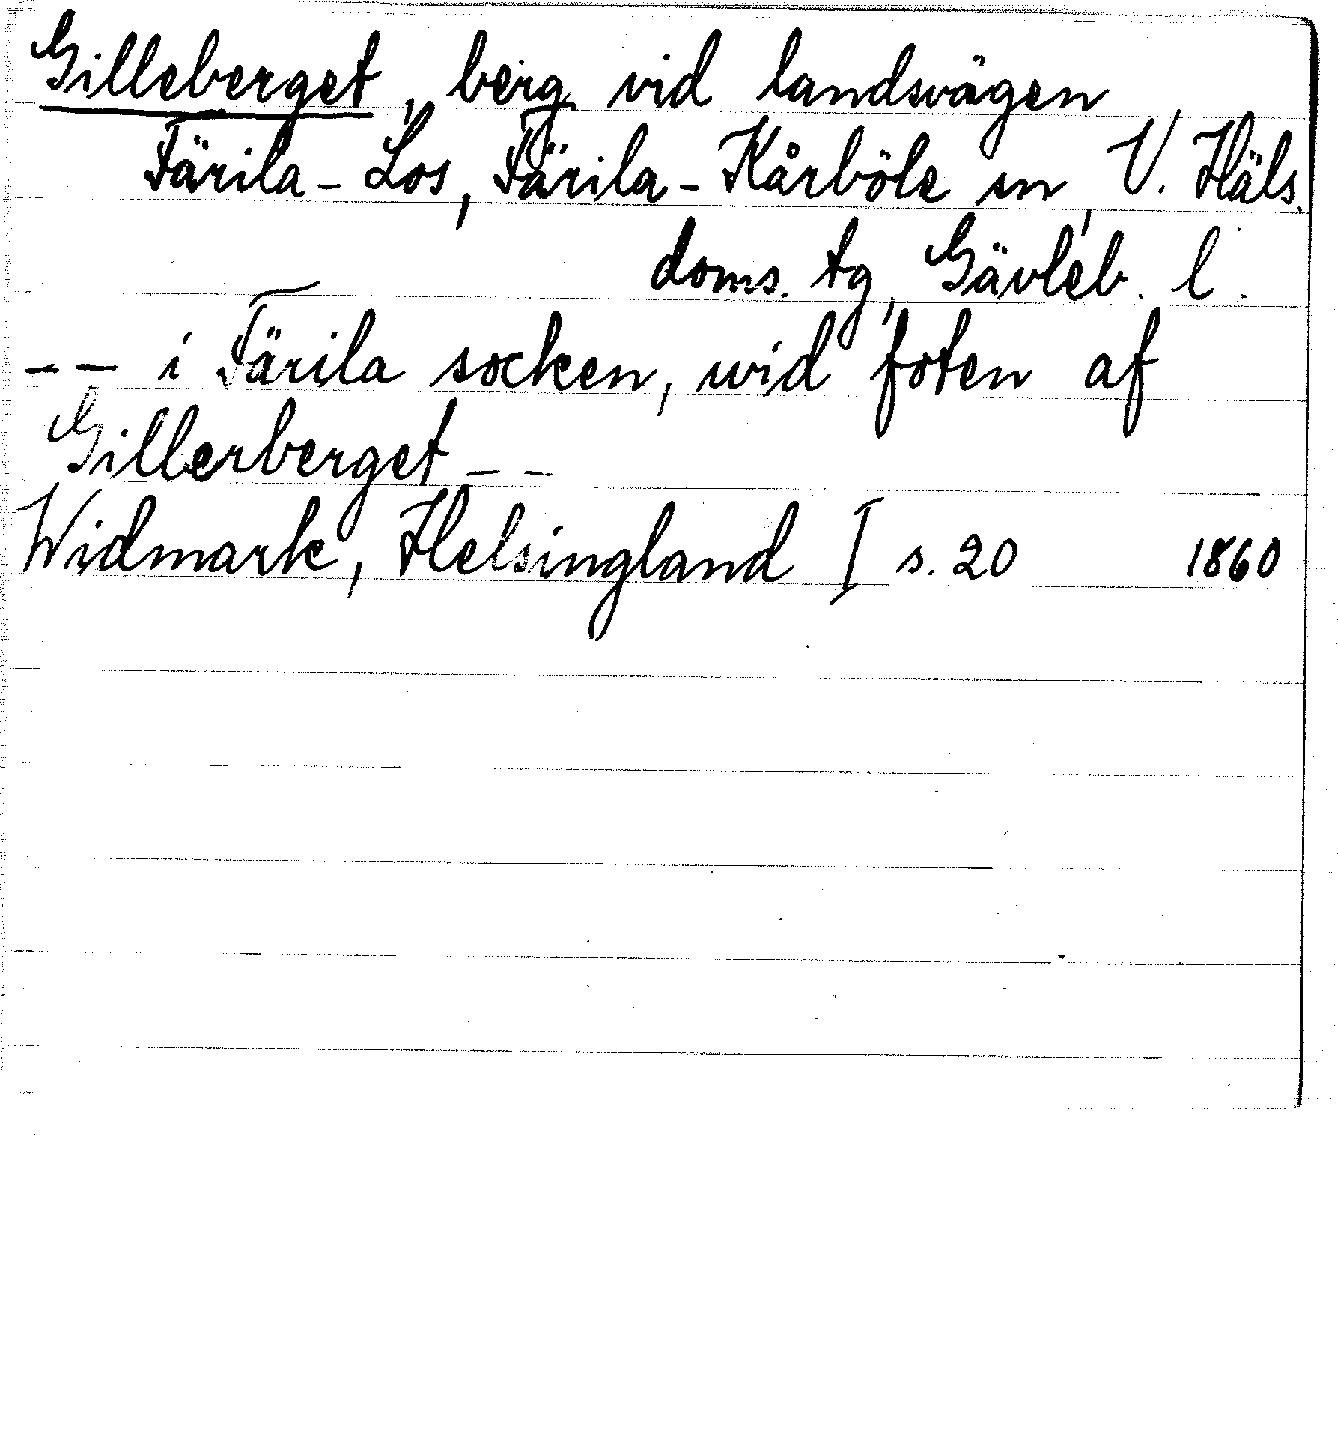 Gilleberget, berg vid landsvägen
Färila - Los, Färila - Kårböle sn, V. Häls.
doms. tg, Gävleb. l.
-- i Färila socken, wid foten af
Gillerberget --
Widmark, Helsingland I s. 20 1860